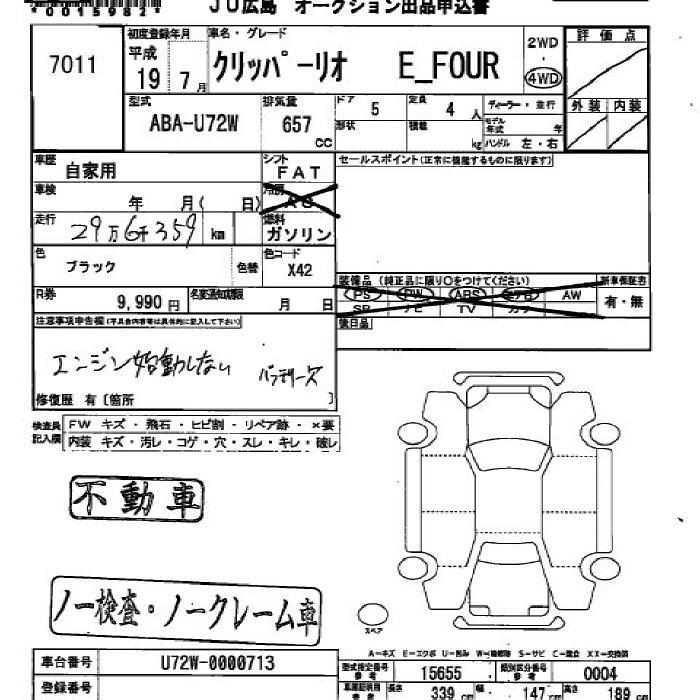 *0015982*
JU広島 オークション出品申込書
7011
初度登録年月
平成
19年7月
車名・グレード
クリッパーリオ E_FOUR
2WD
・
4WD
評価点
外装 内装
型式
ABA-U72W
排気量
657
cc
ドア
5
形状
定員
4人
積載
kg
ディーラー・並行
モデル年式 年
ハンドル 左・右
車歴
自家用
シフト
FAT
セールスポイント(正常に機能するものに限ります)
車検
年 月( 日)
冷房
AC
走行
29万6千359 km
燃料
ガソリン
色
ブラック
色替
色コード
X42
R券
9,990円
名変通知期限
月 日
装備品 (純正品に限り○をつけてください)
PS PW ABS エアB AW
SR ナビ TV カワ
新車保証書
有・無
後日品
注意事項申告欄(不具合内容等は具体的に記入して下さい)
エンジン始動しない バッテリー欠
修復歴 有〔箇所 〕
検査員記入欄
FW キズ・飛石・ヒビ割・リペア跡・×要
内装 キズ・汚レ・コゲ・穴・スレ・キレ・破レ
不動車
ノー検査・ノークレーム車
スペア
A-キズ E-エクボ U-凹み W-補修跡 S-サビ C-腐食 XX-交換済
車台番号
U72W-0000713
登録番号
型式指定番号
参考
15655
類別区分番号
参考
0004
車庫証明用
参考
長さ
339
cm
幅
147
cm
高さ
189
cm